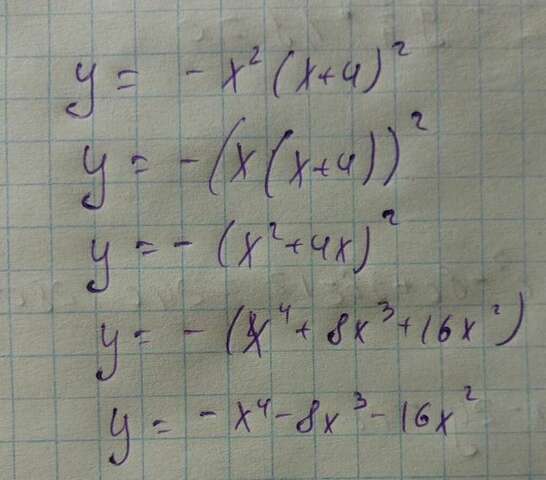 y = - x² (x+4)²
y = - (x(x+4))²
y = - (x²+4x)²
y = - (x⁴+8x³+16x²)
y = -x⁴-8x³-16x²